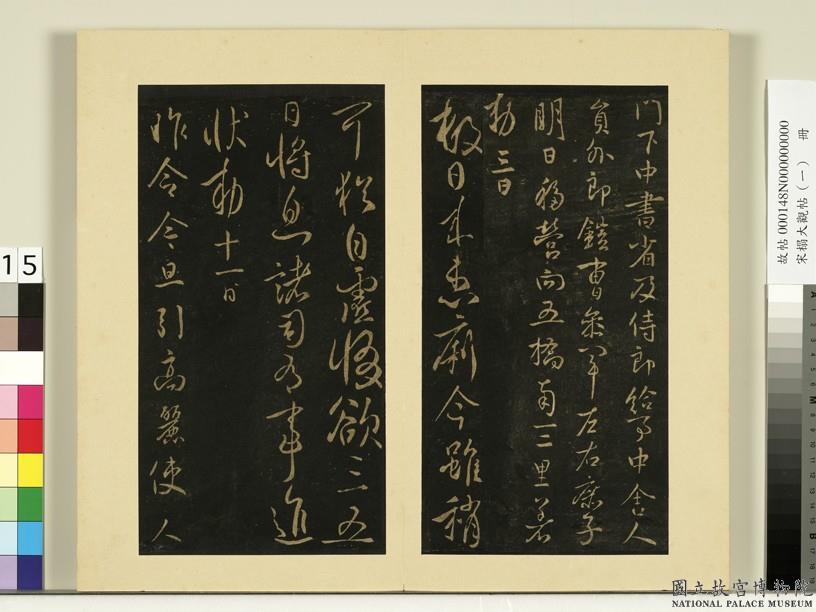 門下中書省及侍郎給事中舍人
員外郎鎧曹參軍左右庶子
明日移營向五橋南一二里若
勅三日
數日來患痢今雖稍
可猶自虛惙欲三五
日將息諸司有事進
狀勅十一日
昨令今旦引高麗使人
故帖 000148N000000000
宋搨大觀帖(一) 冊
15
國立故宮博物院
NATIONAL PALACE MUSEUM